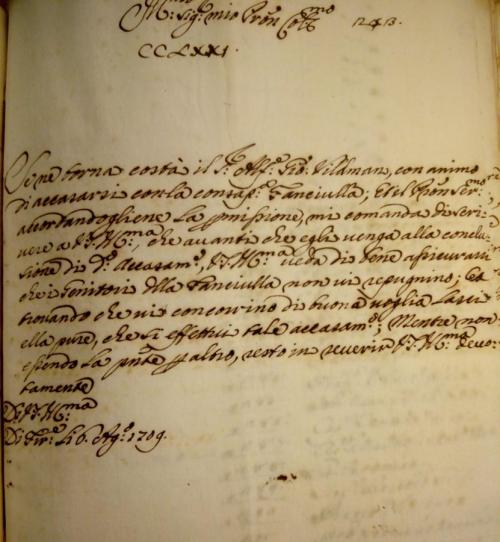 Ill.mo Sig.e mio Pron Col.mo 1243.
CCLXXI.
Se ne torna costà il S.r Alf.e Gio. Vildman, con animo
di accasarsi con la consap.a Fanciulla; Et il Pron Ser.mo
accordandogliene la pmissione, mi comanda di scri-
vere a V.S. Ill.ma, che avanti che egli venga alla conclu-
sione di d.o Accasam.o, V.S. Ill.ma veda di bene assicurarsi
che i Genitori della Fanciulla non vi repugnino; Et
trovando che vi concorrino di buona voglia Lasci
ella pure, che si effettui tale accasam.o; Mentre non
essendo la pnte p altro, resto in reverir V.S. Ill.ma devo-
tamente
Di V.S. Ill.ma
Di Fir.e li 6. Ag.o 1709.